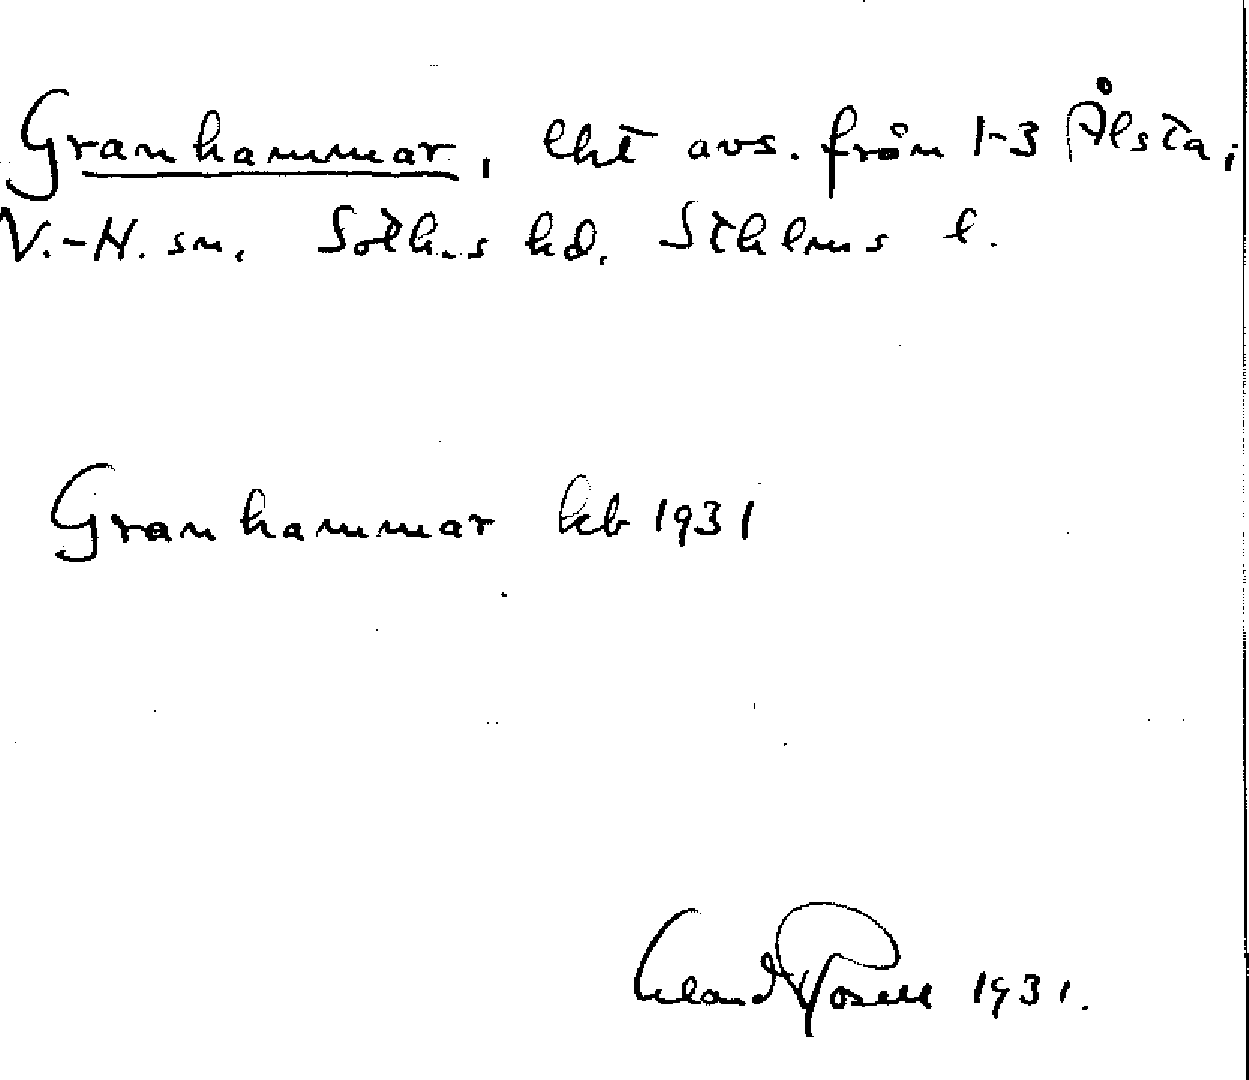 Granhammar, lht avs. från 1-3 Ålsta,
V.-H. sn. Soth.s hd. Sthlms l.
Granhammar kb 1931
Erland Rosell 1931.